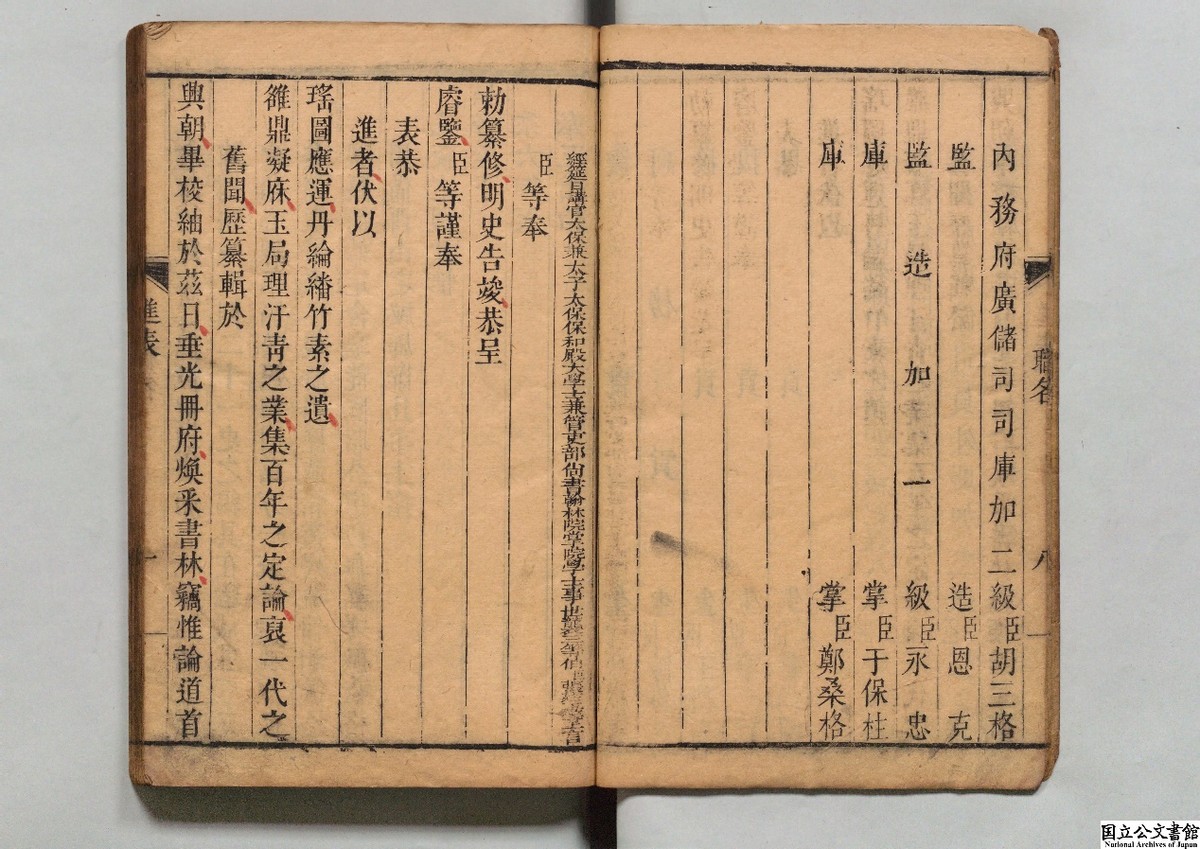 職名 八
內務府廣儲司司庫加二級臣胡三格
監造臣恩克
監造加一級臣永忠
庫掌臣于保柱
庫掌臣鄭桑格
經筵日講官太保兼太子太保保和殿大學士兼管吏部尚書翰林院掌院學士事世襲三等伯臣張上言
臣等奉
勅纂修明史告竣恭呈
睿鑒臣等謹奉
表恭
進者伏以
瑤圖應運丹綸繙竹素之遺
雒鼎凝庥玉局理汗青之業集百年之定論裒一代之
舊聞歷纂輯於
興朝畢校紬於茲日垂光冊府煥釆書林竊惟論道首
進表 一
国立公文書館
National Archives of Japan